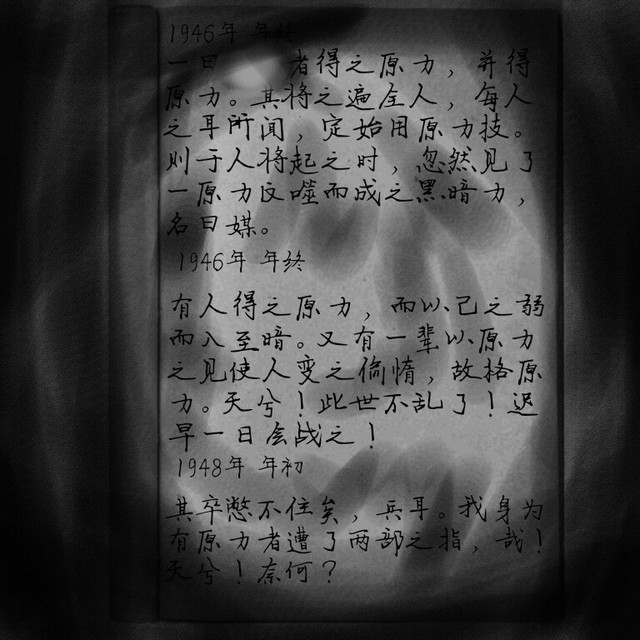 1946年 年终
一日 者得之原力，并得
原力。其将之遍全人，每人
之耳所闻，定始用原力技。
则于人将起之时，忽然见了
一原力反噬而成之黑暗力，
名曰媒。
1946年 年终
有人得之原力，而以己之弱
而入至暗。又有一辈以原力
之见使人变之倘惰，故格原
力。天兮！此世不乱了！迟
早一日会战之！
1948年 年初
其卒憋不住矣，兵耳。我身为
有原力者遭了两部之指，哉！
天兮！奈何？